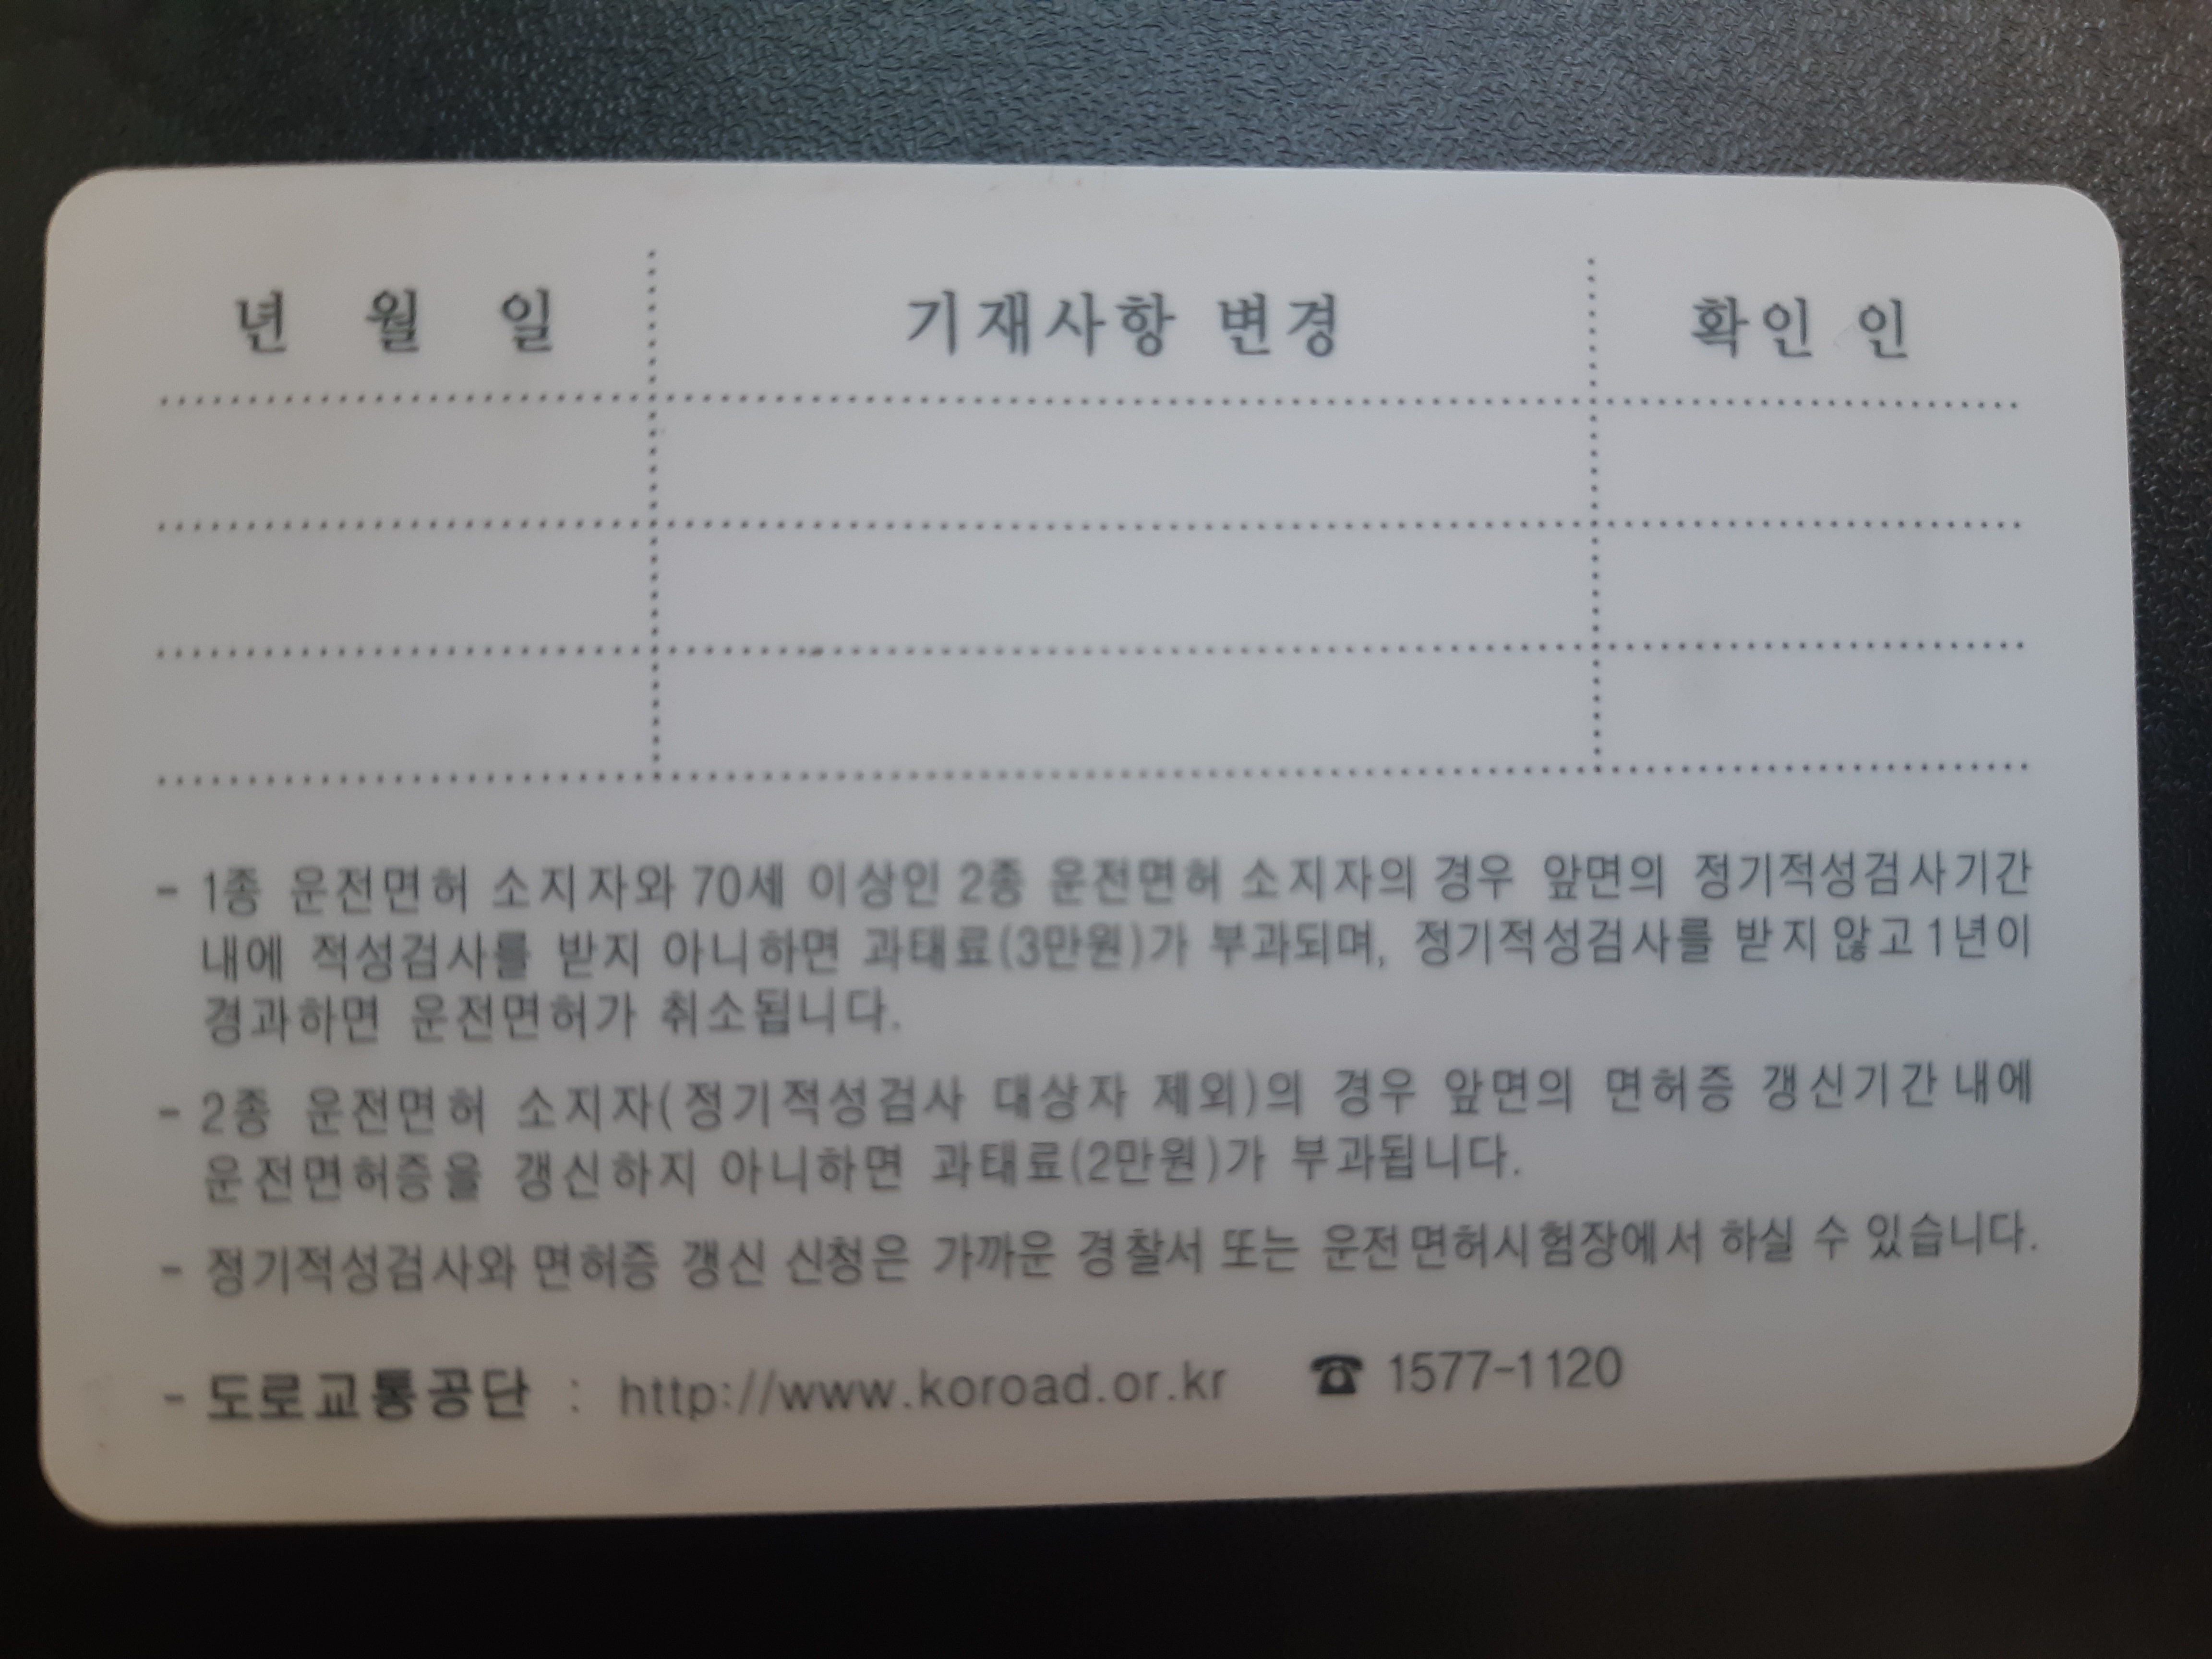 년 월 일 기재사항 변경 확인 인
- 1종 운전면허 소지자와 70세 이상인 2종 운전면허 소지자의 경우 앞면의 정기적성검사기간
내에 적성검사를 받지 아니하면 과태료(3만원)가 부과되며, 정기적성검사를 받지 않고 1년이
경과하면 운전면허가 취소됩니다.
- 2종 운전면허 소지자(정기적성검사 대상자 제외)의 경우 앞면의 면허증 갱신기간 내에
운전면허증을 갱신하지 아니하면 과태료(2만원)가 부과됩니다.
- 정기적성검사와 면허증 갱신 신청은 가까운 경찰서 또는 운전면허시험장에서 하실 수 있습니다.
- 도로교통공단 : http://www.koroad.or.kr ☎ 1577-1120